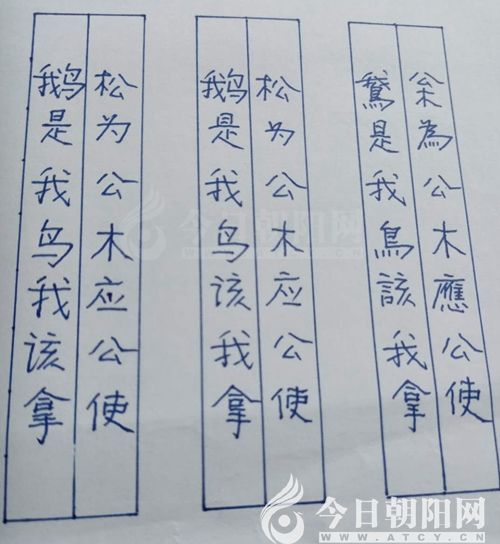 枀為公木應公使
鵞是我鳥該我拿
松为公木应公使
鹅是我鸟该我拿
松为公木应公使
鹅是我鸟我该拿
今日朝阳网
今日朝阳网
WWW.ATCY.CN